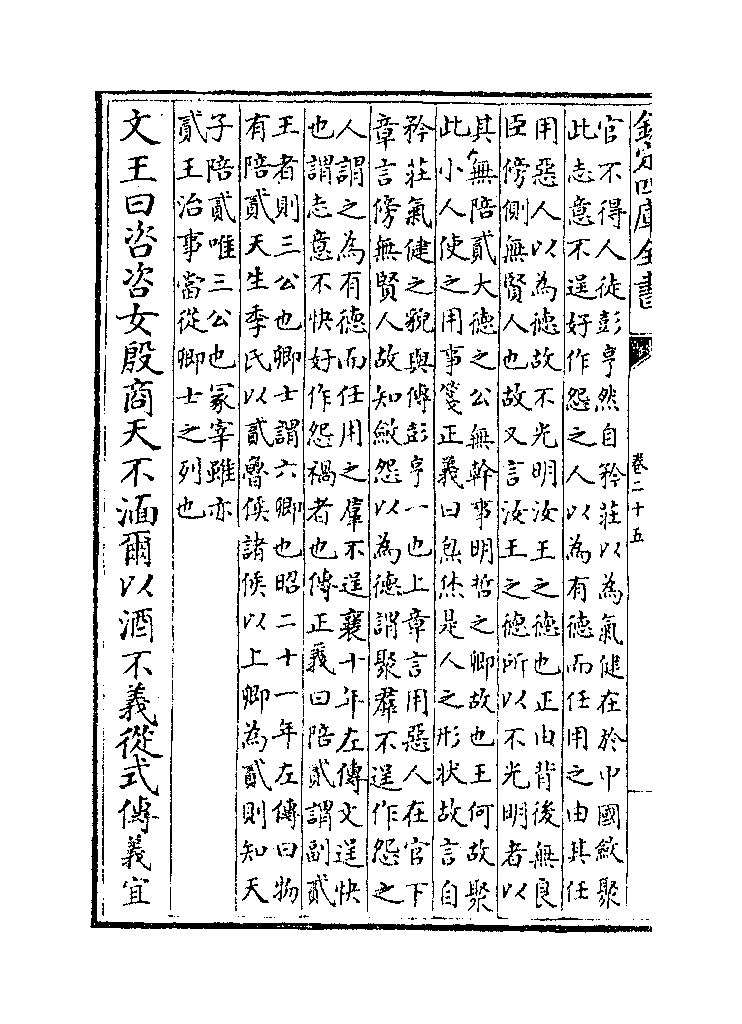 欽定四庫全書
卷二十五
官不得人徒彭亨然自矜莊以為氣健在於中國斂聚
此志意不逞好作怨之人以為有德而任用之由其任
用惡人以為德故不光明汝王之德也正由背後無良
臣傍側無賢人也故又言汝王之德所以不光明者以
其無陪貳大德之公無幹事明哲之卿故也王何故聚
此小人使之用事箋正義曰炰烋是人之形狀故言自
矜莊氣健之貌與傳彭亨一也上章言用惡人在官下
章言傍無賢人故知斂怨以為德謂聚羣不逞作怨之
人謂之為有德而任用之羣不逞襄十年左傳文逞快
也謂志意不快好作怨禍者也傳正義曰陪貳謂副貳
王者則三公也卿士謂六卿也昭二十一年左傳曰物
有陪貳天生季氏以貳魯侯諸侯以上卿為貳則知天
子陪貳唯三公也冡宰雖亦
貳王治事當從卿士之列也
文王曰咨咨女殷商天不湎爾以酒不義從式傳義宜